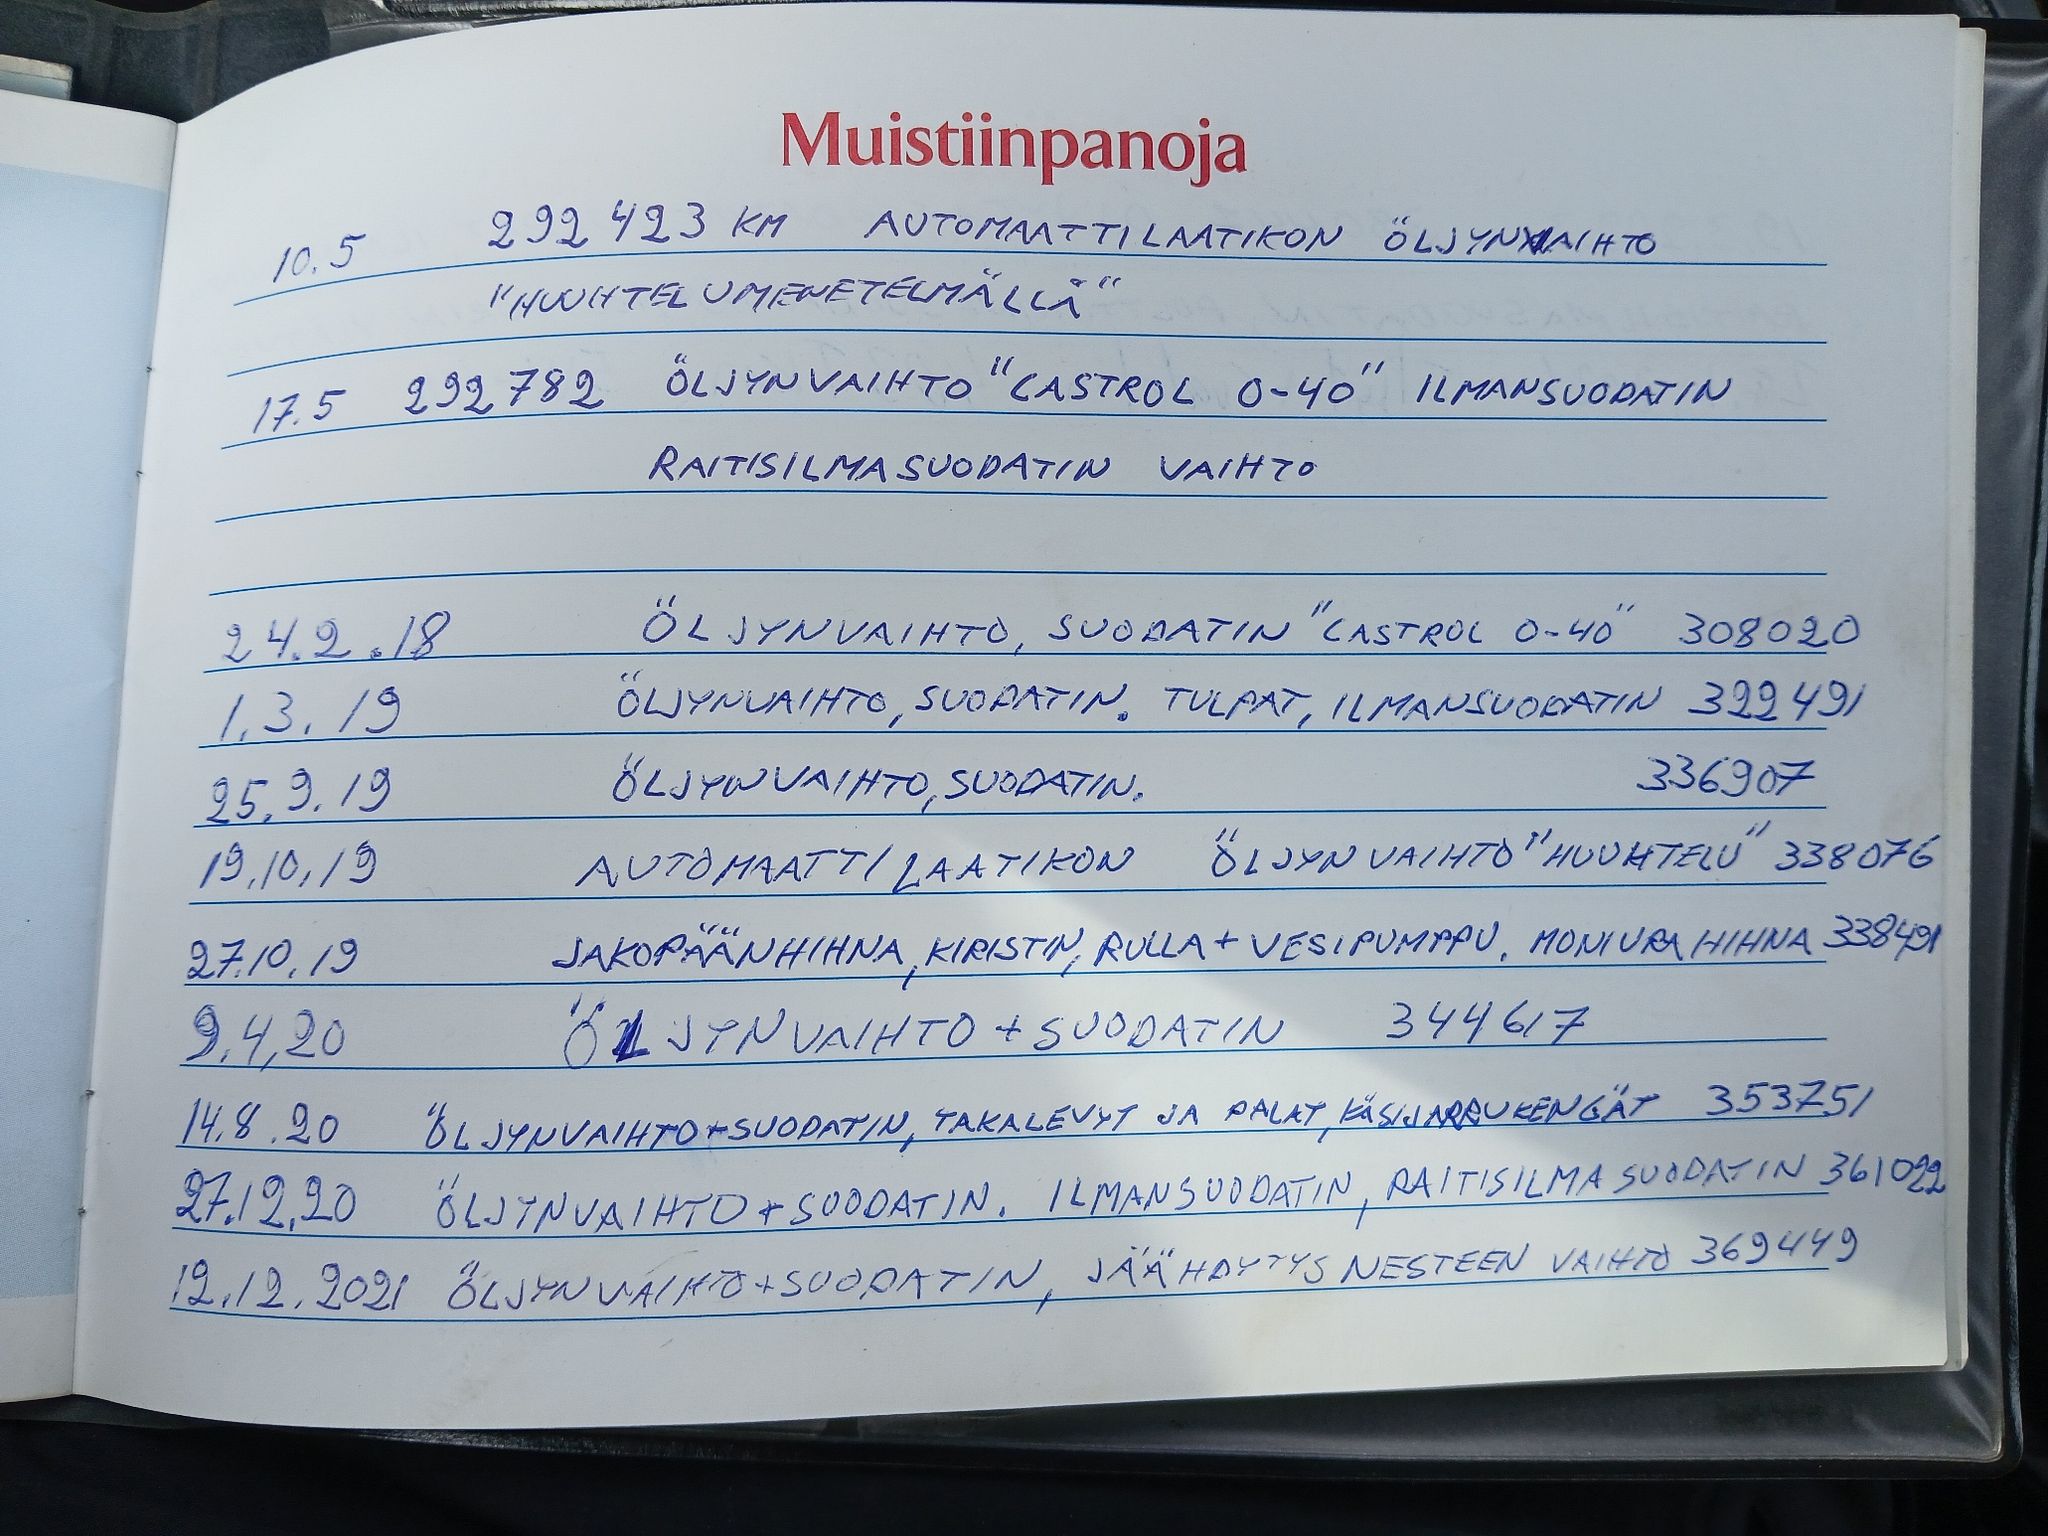 Muistiinpanoja
10.5 292 423 KM AUTOMAATTILAATIKON ÖLJYNVAIHTO
"HUUHTELUMENETELMÄLLÄ"
17.5 292782 ÖLJYNVAIHTO "CASTROL 0-40" ILMANSUODATIN
RAITISILMASUODATIN VAIHTO
24.2.18 ÖLJYNVAIHTO, SUODATIN "CASTROL 0-40" 308020
1.3.19 ÖLJYNVAIHTO, SUODATIN. TULPAT, ILMANSUODATIN 322491
25.9.19 ÖLJYNVAIHTO, SUODATIN. 336907
19.10.19 AUTOMAATTILAATIKON ÖLJYNVAIHTO "HUUHTELU" 338076
27.10.19 JAKOPÄÄNHIHNA, KIRISTIN, RULLA + VESIPUMPPU. MONIURAHIHNA 338491
9.4.20 ÖLJYNVAIHTO + SUODATIN 344617
14.8.20 ÖLJYNVAIHTO+SUODATIN, TAKALEVYT JA PALAT, KÄSIJARRUKENGÄT 353751
27.12.20 ÖLJYNVAIHTO + SUODATIN. ILMANSUODATIN, RAITISILMASUODATIN 361022
12.12.2021 ÖLJYNVAIHTO+SUODATIN, JÄÄHDYTYSNESTEEN VAIHTO 369449